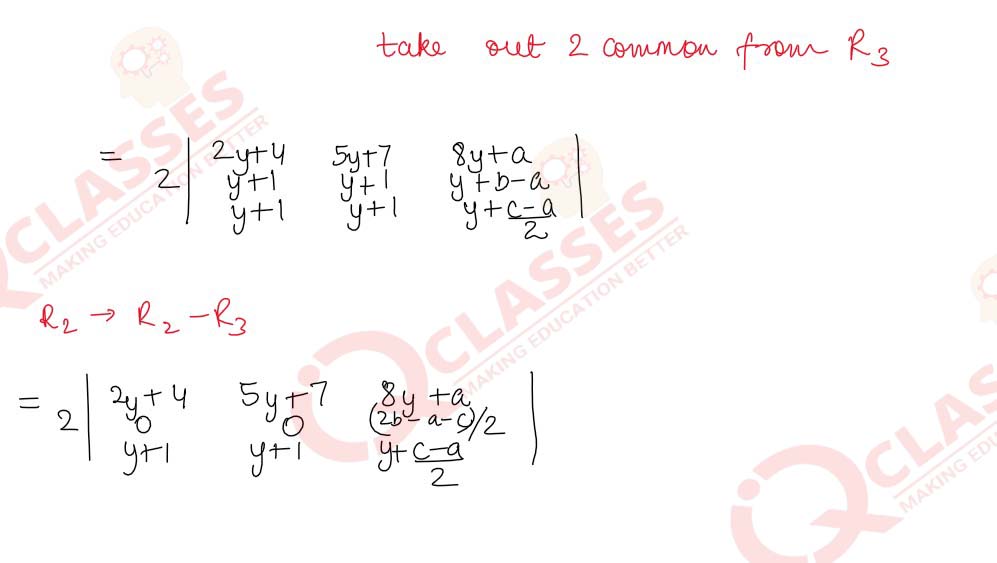 take out 2 common from R₃
= 2 | 2y+4 5y+7 8y+a |
y+1 y+1 y+b-a
y+1 y+1 y+(c-a)/2
R₂ → R₂ - R₃
= 2 | 2y+4 5y+7 8y+a |
0 0 (2b-a-c)/2
y+1 y+1 y+(c-a)/2
CLASSES
MAKING EDUCATION BETTER
IQ CLASSES
MAKING EDUCATION BETTER
IQ CLASSES
MAKING EDUCATION